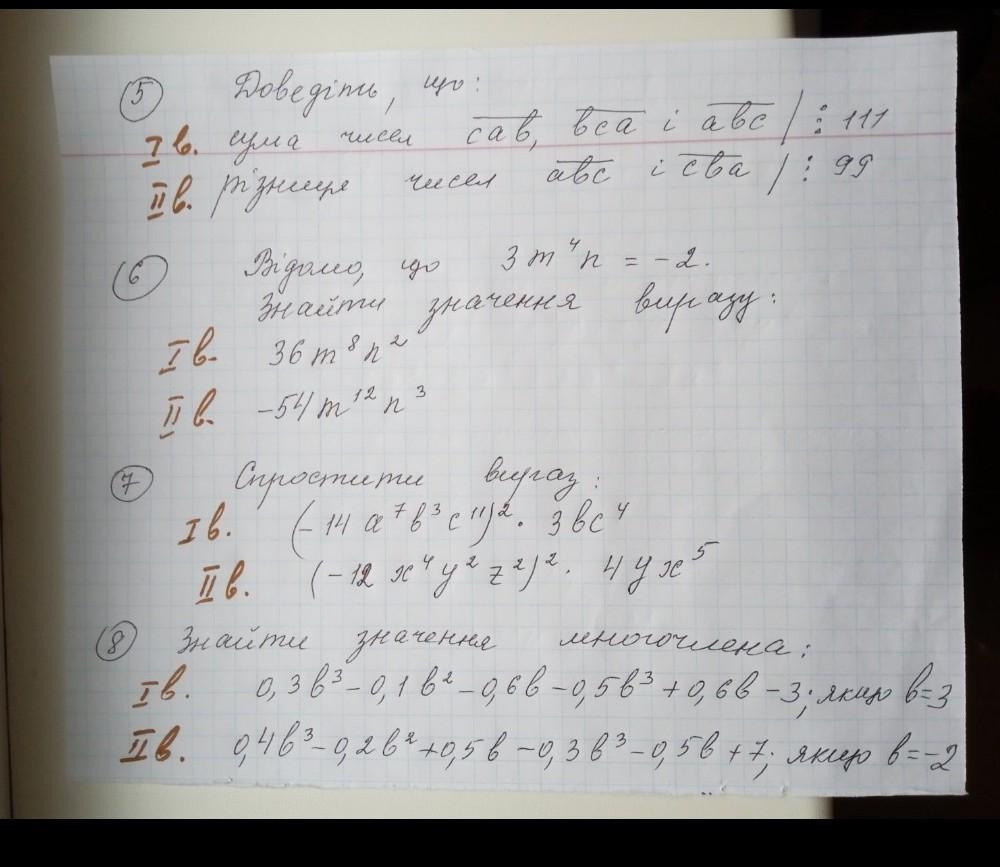 5 Доведіть, що:
I в. сума чисел c̅a̅b̅, b̅c̅a̅ і a̅b̅c̅ / ⋮ 111
II в. різниця чисел a̅b̅c̅ і c̅b̅a̅ / ⋮ 99
6 Відомо, що 3m⁴n = -2.
Знайти значення виразу:
I в. 36m⁸n²
II в. -54m¹²n³
7 Спростити вираз:
I в. (-14a⁷b³c¹¹)² · 3bc⁴
II в. (-12x⁴y²z²)² · 4yx⁵
8 Знайти значення многочлена:
I в. 0,3b³ - 0,1b² - 0,6b - 0,5b³ + 0,6b - 3; якщо b=3
II в. 0,4b³ - 0,2b² + 0,5b - 0,3b³ - 0,5b + 7; якщо b=-2